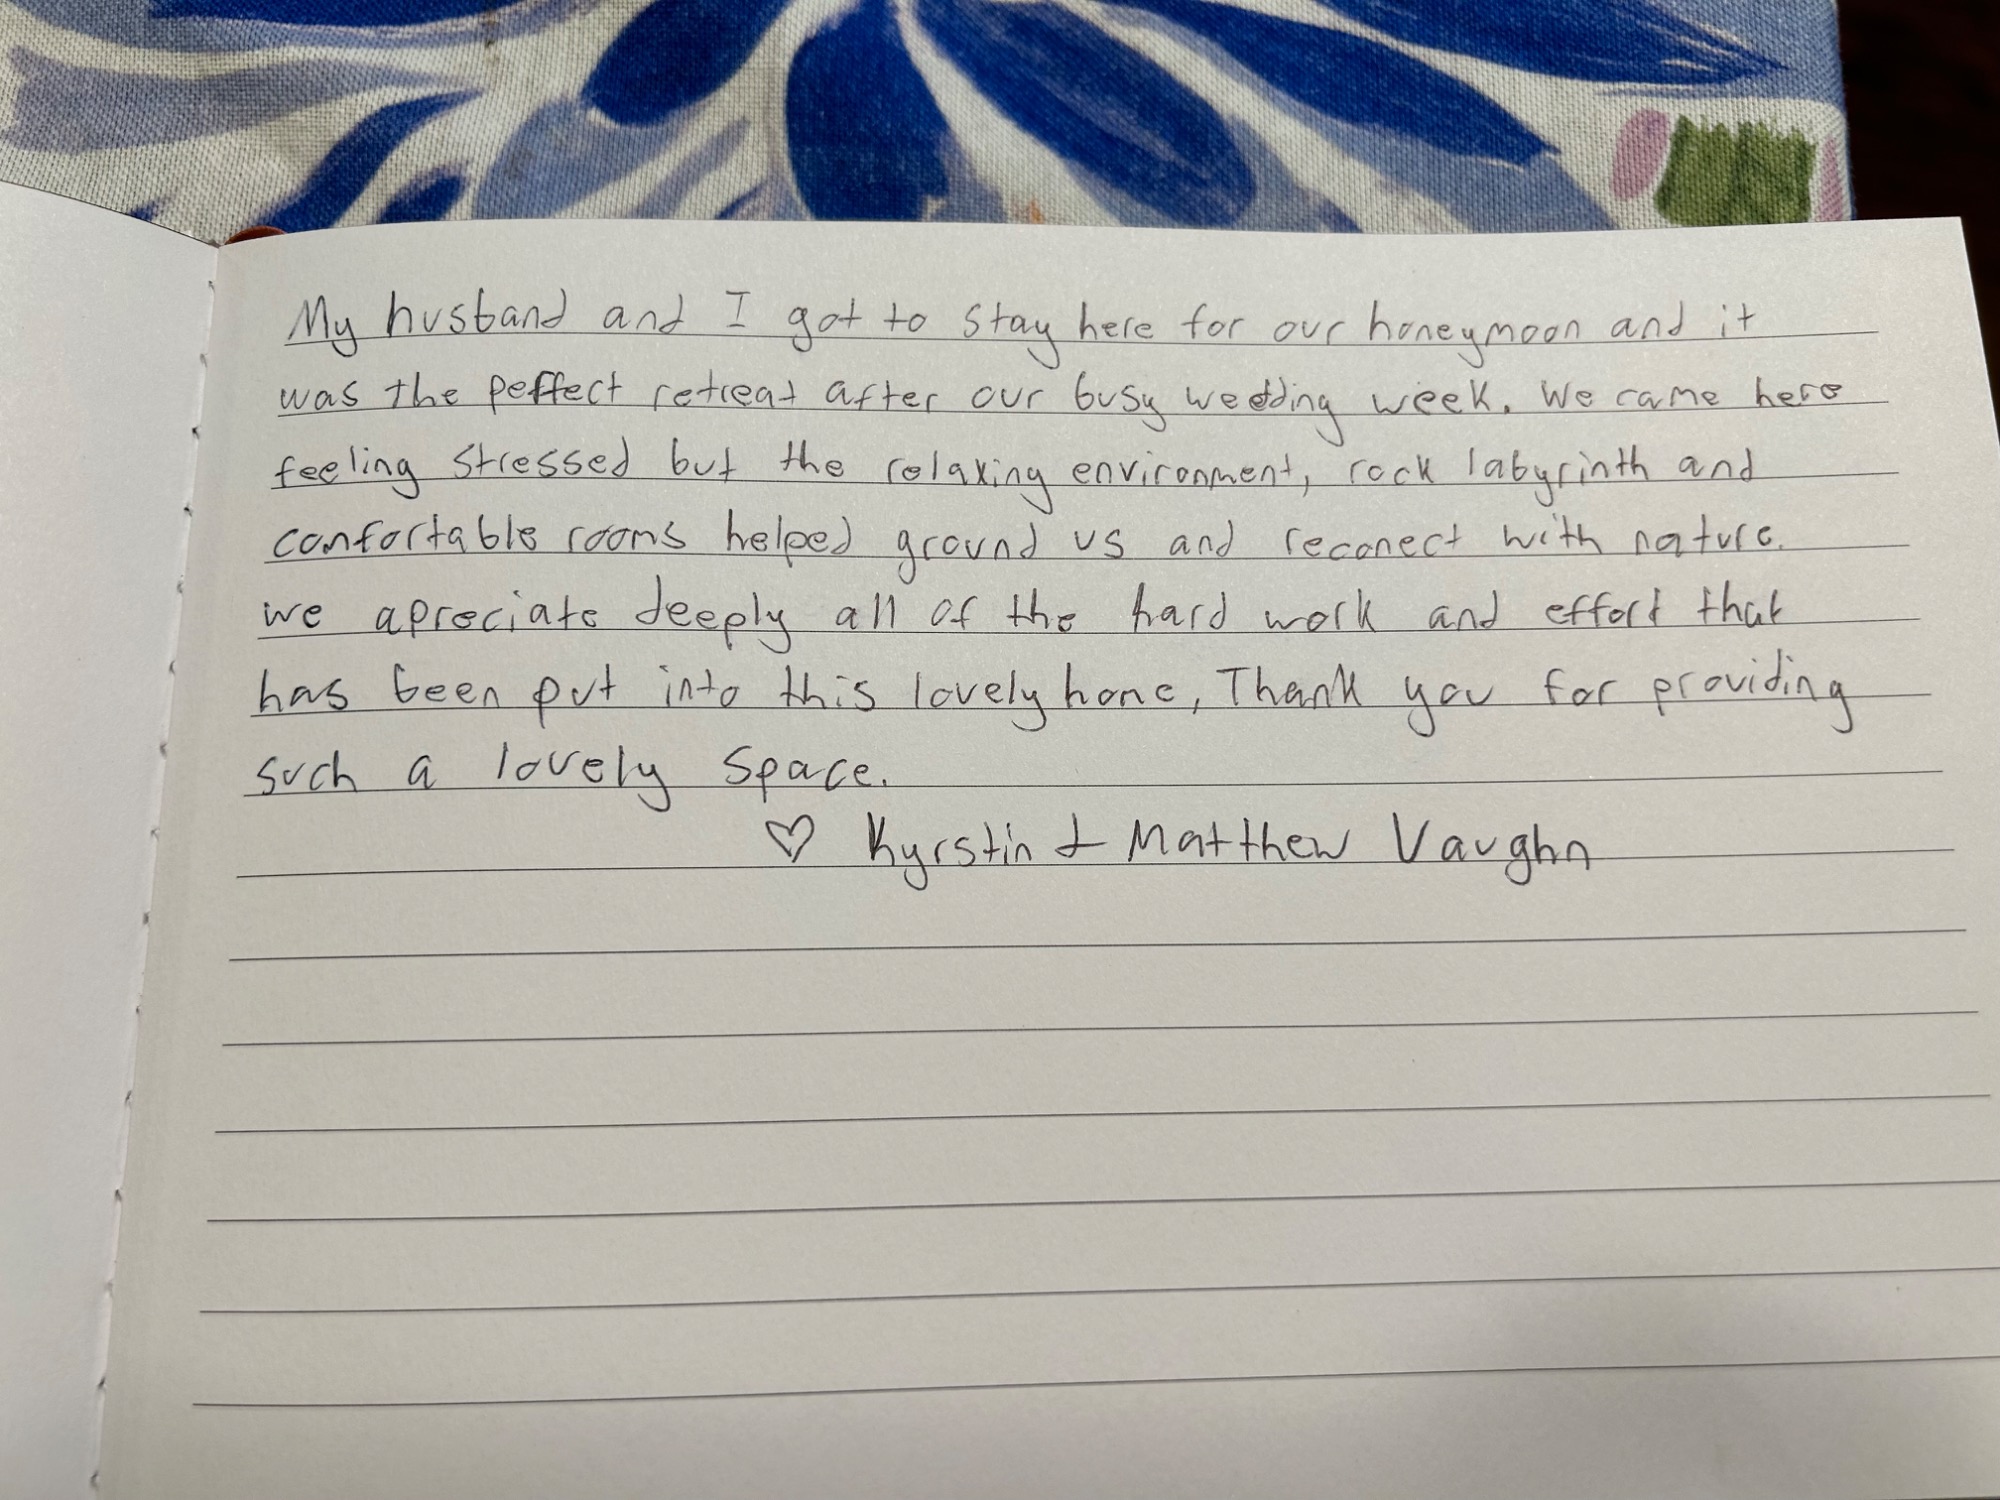 My husband and I got to stay here for our honeymoon and it
was the peffect retreat after our busy wedding week. We came here
feeling stressed but the relaxing environment, rock labyrinth and
confortable rooms helped ground us and reconect with nature.
we apreciate deeply all of the hard work and effort that
has been put into this lovely home, Thank you for providing
such a lovely space.
♡ Kyrstin & Matthew Vaughn